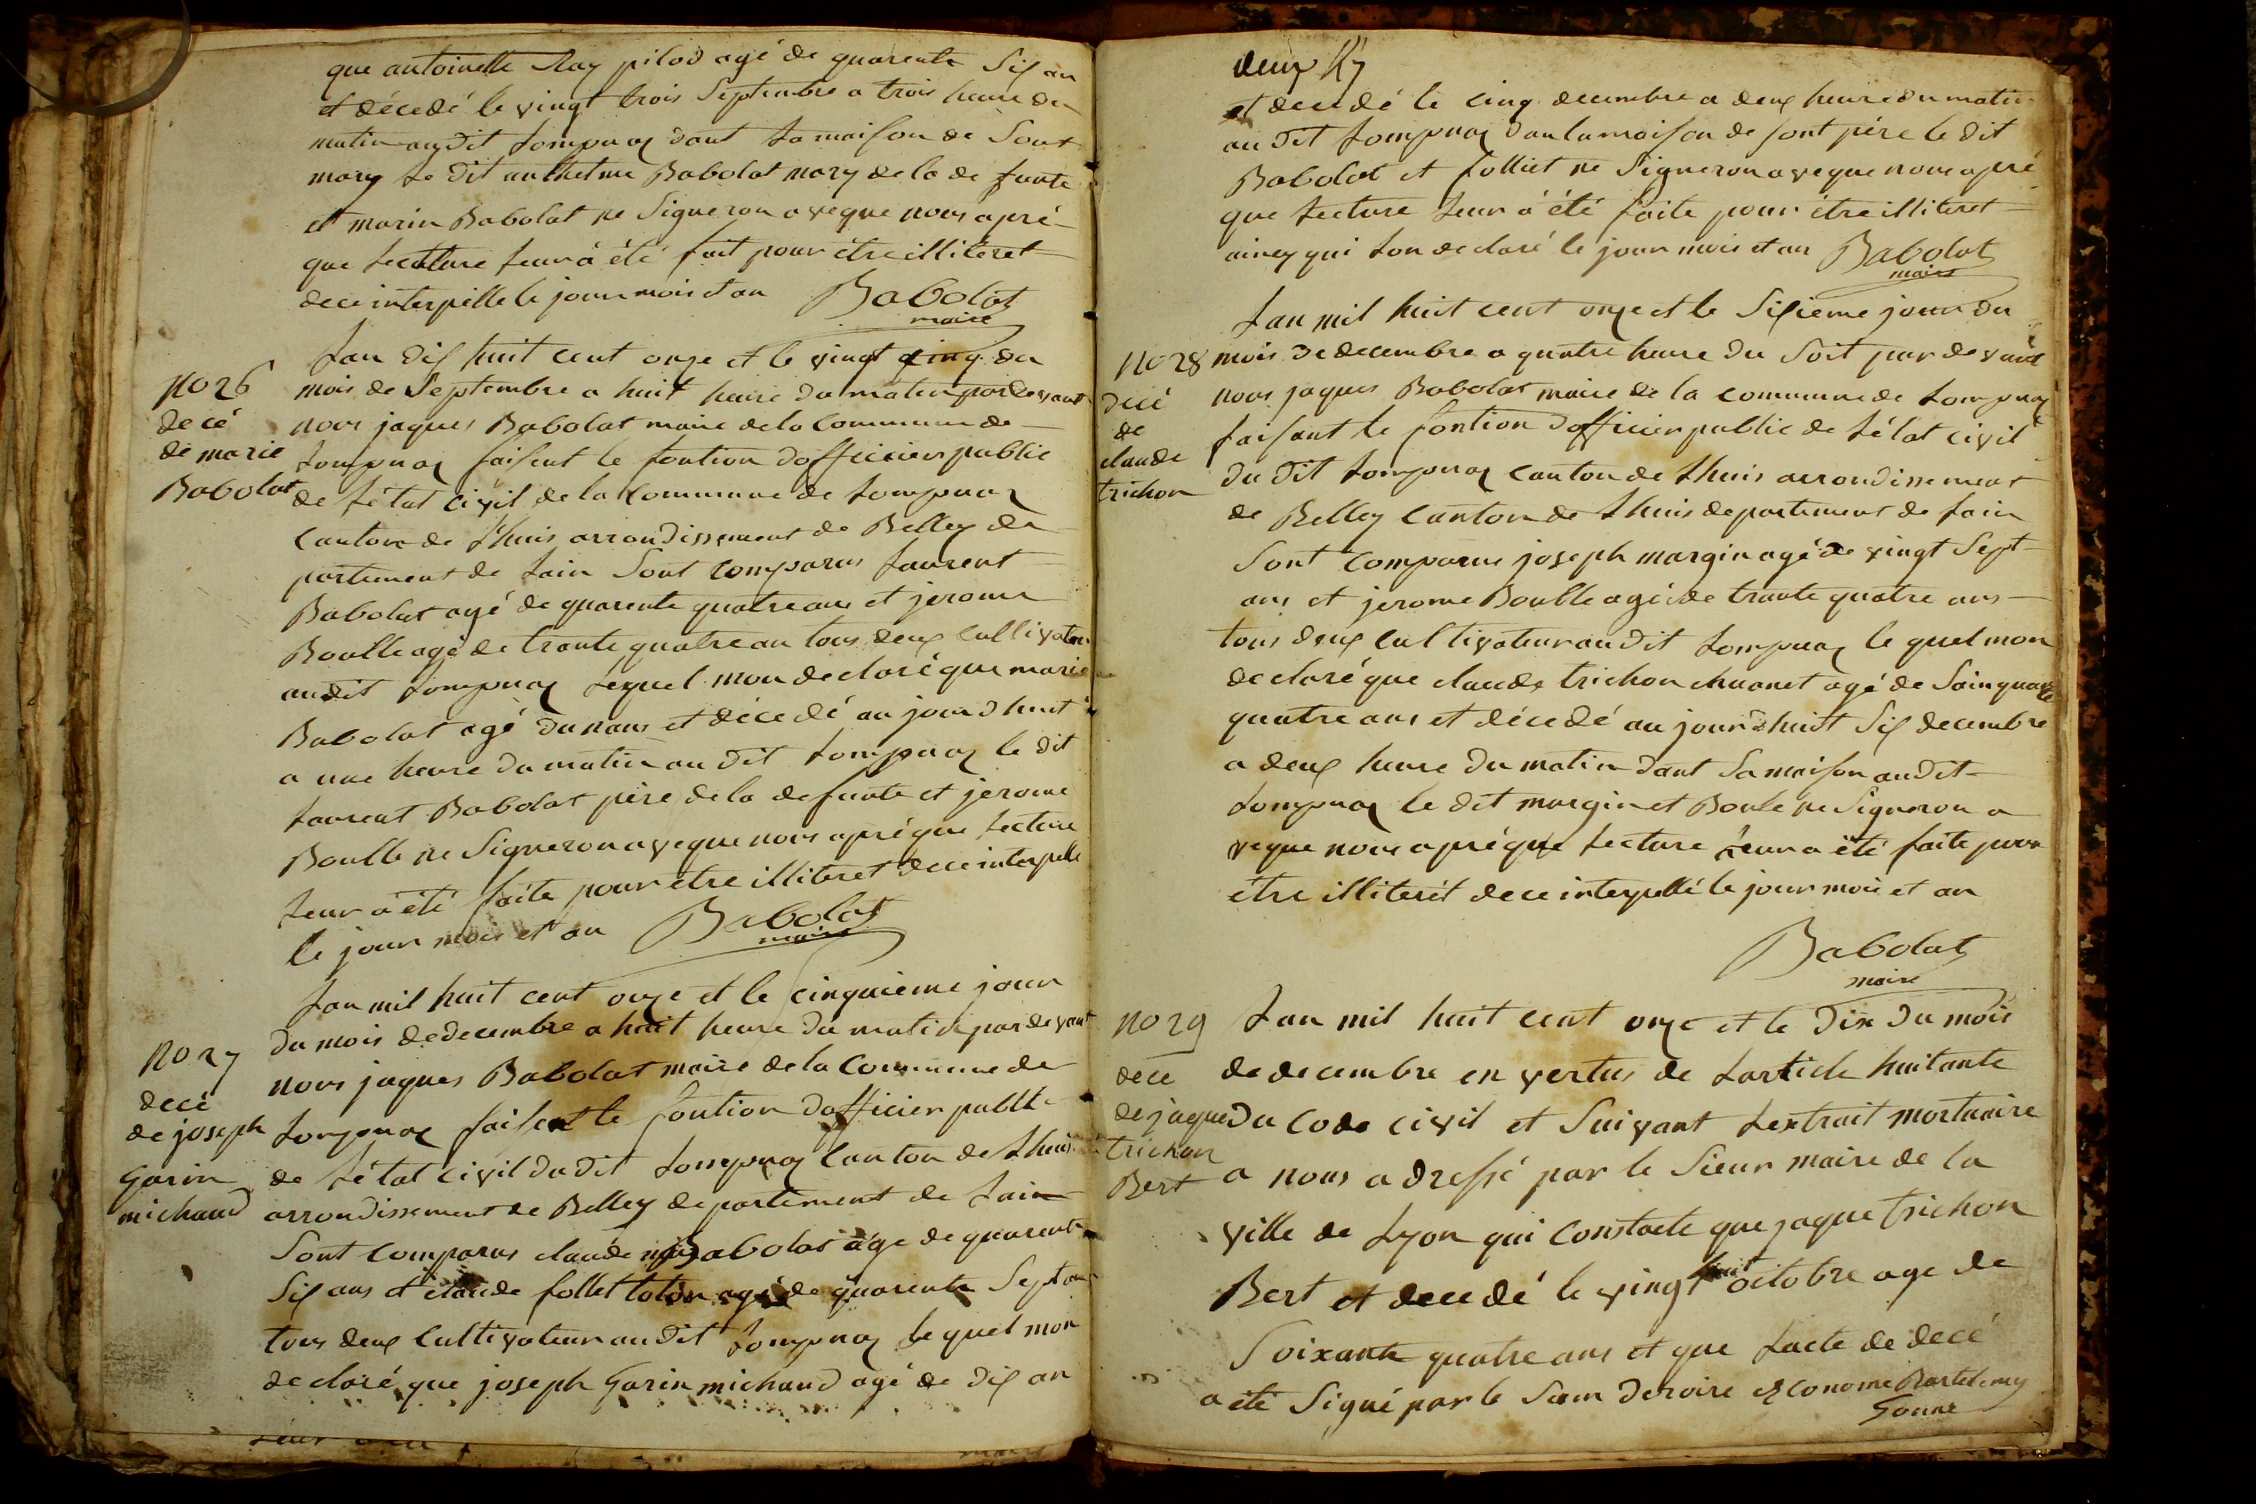 que antoinette Ray pilod agé de quarente Six an
et décedé le vingt trois Septembre a trois heure du
matin audit Lompnaz dant La maison de Sont
mary Le dit anthelme Babolat mary de la defunte
et marin Babolat ne Signeron aveque nous apré
que Lectture Leur à été fait pour être illiteret
dece interpelle le jour mois et an Babolat
maire
no 26
decé
de marie
Babolat
Lan dix huit cent onze et le vingt cinq du
mois de Septembre a huit heure du matin pardevant
nous jaques Babolat maire de la Commune de
Lompnaz faisent le fontion dofficier public
de Létat civil de la Commune de Lompnaz
Canton de Lhuis arrondissement de Belley de
partement de Lain Sont comparus Laurent
Babolat agé de quarente quatre ans et jerome
Boulle agé de trante quatre an tous deux Cultivateur
audit Lompnaz Lequel mon declaré que marie
Babolat agé dunans et décedé au jourdhuit
a une heure du matin au dit Lompnaz le dit
Laurent Babolat père de la defunte et jerome
Boulle ne Signeron aveque nous apré que Lecture
Leur à été faite pour etre illiteret dece interpelle
le jour mois et an Babolat
maire
no 27
decé
de joseph
Garin
michaud
Lan mil huit cent onze et le cinquieme jour
du mois de decembre a huit heure du matin pardevant
nous jaques Babolat maire de la Commune de
Lompnaz faisent le fontion dofficier public
de Létat civil du dit Lompnaz Canton de Lhuis
arrondissement de Belley departement de Lain
Sont comparus claude Babolat age de quarente
Six ans et claude follet agé de quarente Sept an
tous deux Cultivateur audit Lompnaz Le quel mon
declaré que joseph Garin michaud agé de dix an
deux
et decedé le cinq decembre a deux heure du matin
au dit Lompnaz dan la maison de sont père le dit
Babolat et folliet ne Signeron aveque nous apré
que Lecture Leur à été faite pour être illiteret
ainez qui Lon declaré le jour mois et an Babolat
maire
no 28
decé
de
claude
trichon
Lan mil huit cent onze et le Sixieme jour du
mois de decembre a quatre heure du Soit par devant
nous jaques Babolat maire de la commune de Lompnaz
faisant le fontion dofficier public de Létat civil
du dit Lompnaz canton de Lhuis arrondissement
de Belley Canton de Lhuis departement de Lain
Sont comparus joseph margin agé de vingt Sept
ans et jerome Boulle agé de trante quatre ans
tous deux cultivateur audit Lompnaz le quel mon
declaré que claude trichon chuanet agé de Sainquante
quatre ans et décedé au jour dhuit Six decembre
a deux heure du matin dant Sa maison audit
Lompnaz le dit margin et Boule ne Signeron a
veque nous apré que Lecture Leur a été faite pour
être illiterét dece interpellé le jour mois et an
Babolat
maire
no 29
decé
de jaque
trichon
Bert
Lan mil huit cent onze et le dix du mois
de decembre en vertus de Larticle huitante
du Code civil et Suivant Lextrait mortuaire
a nous adressé par le Sieur maire de la
ville de Lyon qui constaete que jaque trichon
Bert et decedé le vingt huit octobre age de
Soixante quatre ans et que Lacte de decé
a été Signé par le Sieur deroire Econome Bartelemy